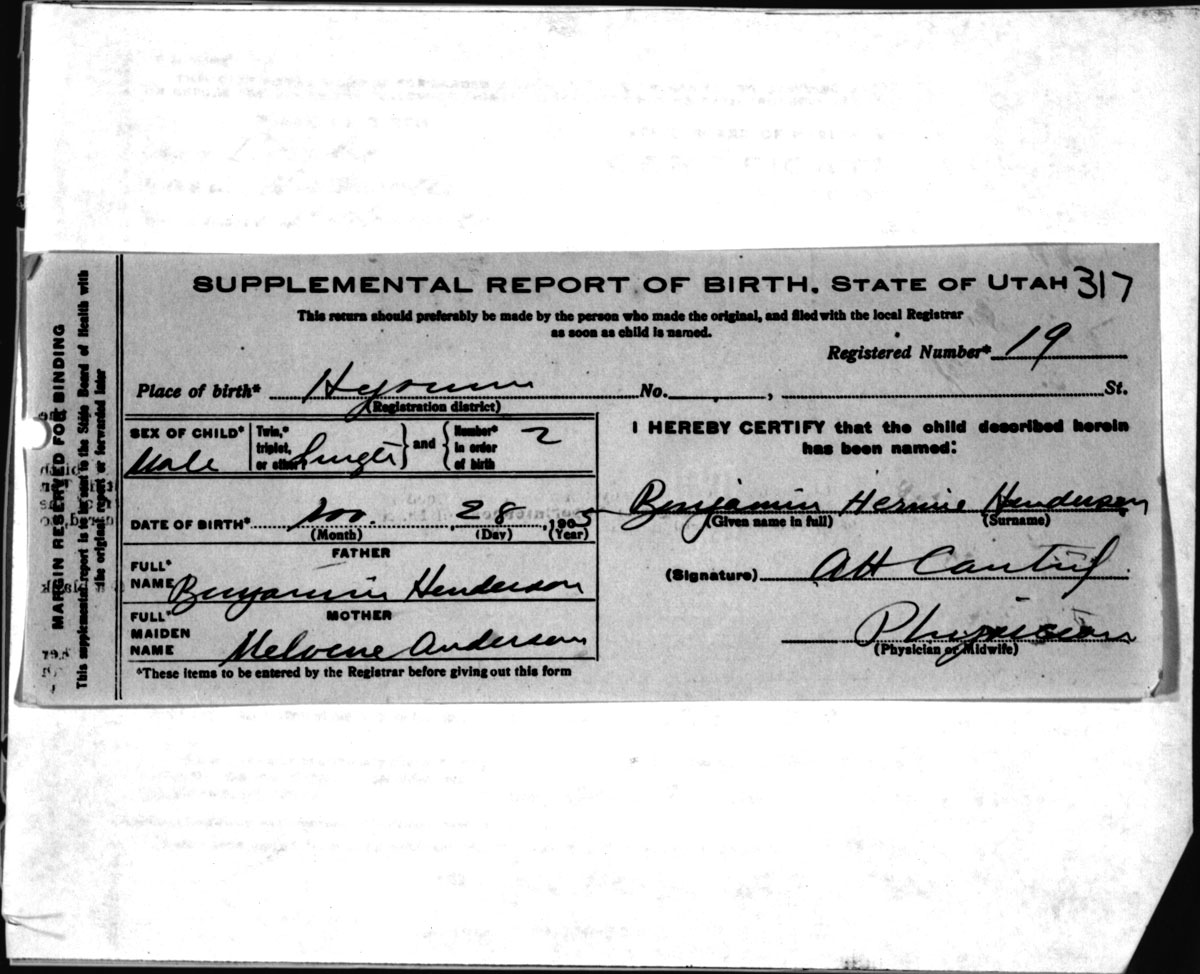 SUPPLEMENTAL REPORT OF BIRTH, STATE OF UTAH 317
This return should preferably be made by the person who made the original, and filed with the local Registrar
as soon as child is named.
Registered Number* 19
Place of birth* Hyrum No. , St.
(Registration district)
SEX OF CHILD* Male
Twin,* triplet, or other Single and Number* in order of birth 2
DATE OF BIRTH* Nov. , 28 , 1905
(Month) (Day) (Year)
FATHER
FULL* NAME Benjamin Henderson
MOTHER
FULL* MAIDEN NAME Melvene Anderson
*These items to be entered by the Registrar before giving out this form
I HEREBY CERTIFY that the child described herein
has been named:
Benjamin Henderson
(Given name in full) (Surname)
(Signature)
Physician
(Physician or Midwife)
MARGIN RESERVED FOR BINDING
This supplemental report is to be sent to the State Board of Health with
the original report or forwarded later